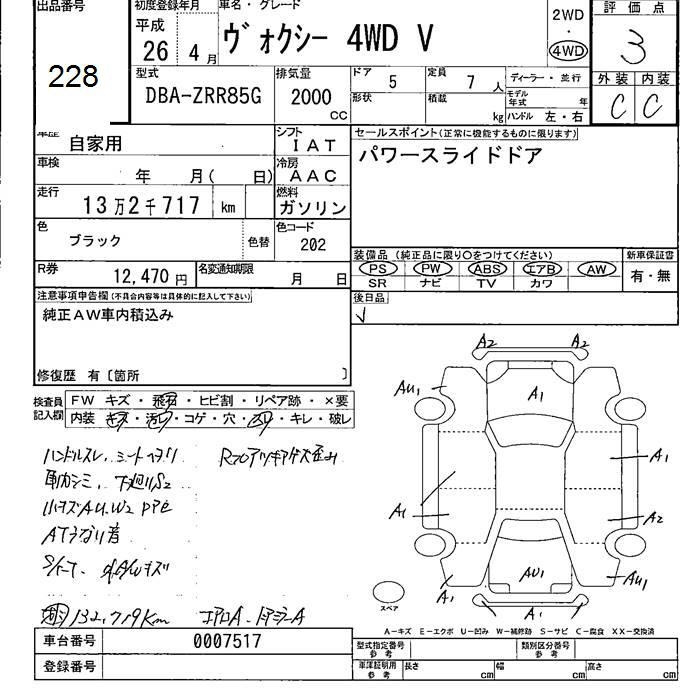 出品番号
228
初度登録年月
平成
26 4 月
車名・グレード
ヴォクシー 4WD V
2WD
・
4WD
評価点
3
外装 内装
C C
型式
DBA-ZRR85G
排気量
2000
CC
ドア
5
定員
7 人
形状
積載
kg
ディーラー・並行
モデル年式 年
ハンドル 左・右
車歴
自家用
シフト
IAT
車検
年 月( 日)
冷房
AAC
走行
13万2千717 km
燃料
ガソリン
色
ブラック
色替
色コード
202
R券
12,470 円
名変通知期限
月 日
セールスポイント(正常に機能するものに限ります)
パワースライドドア
装備品 (純正品に限り○をつけてください)
PS PW ABS エアB AW
SR ナビ TV カワ
新車保証書
有・無
後日品
注意事項申告欄(不具合内容等は具体的に記入して下さい)
純正AW車内積込み
修復歴 有〔箇所 〕
検査員記入欄
FW キズ・飛石・ヒビ割・リペア跡・×要
内装 キズ・汚レ・コゲ・穴・凹・キレ・破レ
ハンドルスレ、シートヘタリ
下廻りS2
小キズAU.W2
ATうなり音
132,719Km
A2 A2
AU1
A1
A1
A1
A2
AU1
A1
AU1
A1
スペア
A-キズ E-エクボ U-凹み W-補修跡 S-サビ C-腐食 XX-交換済
車台番号
0007517
登録番号
型式指定番号
参考
類別区分番号
参考
車庫証明用
参考
長さ cm
幅 cm
高さ cm